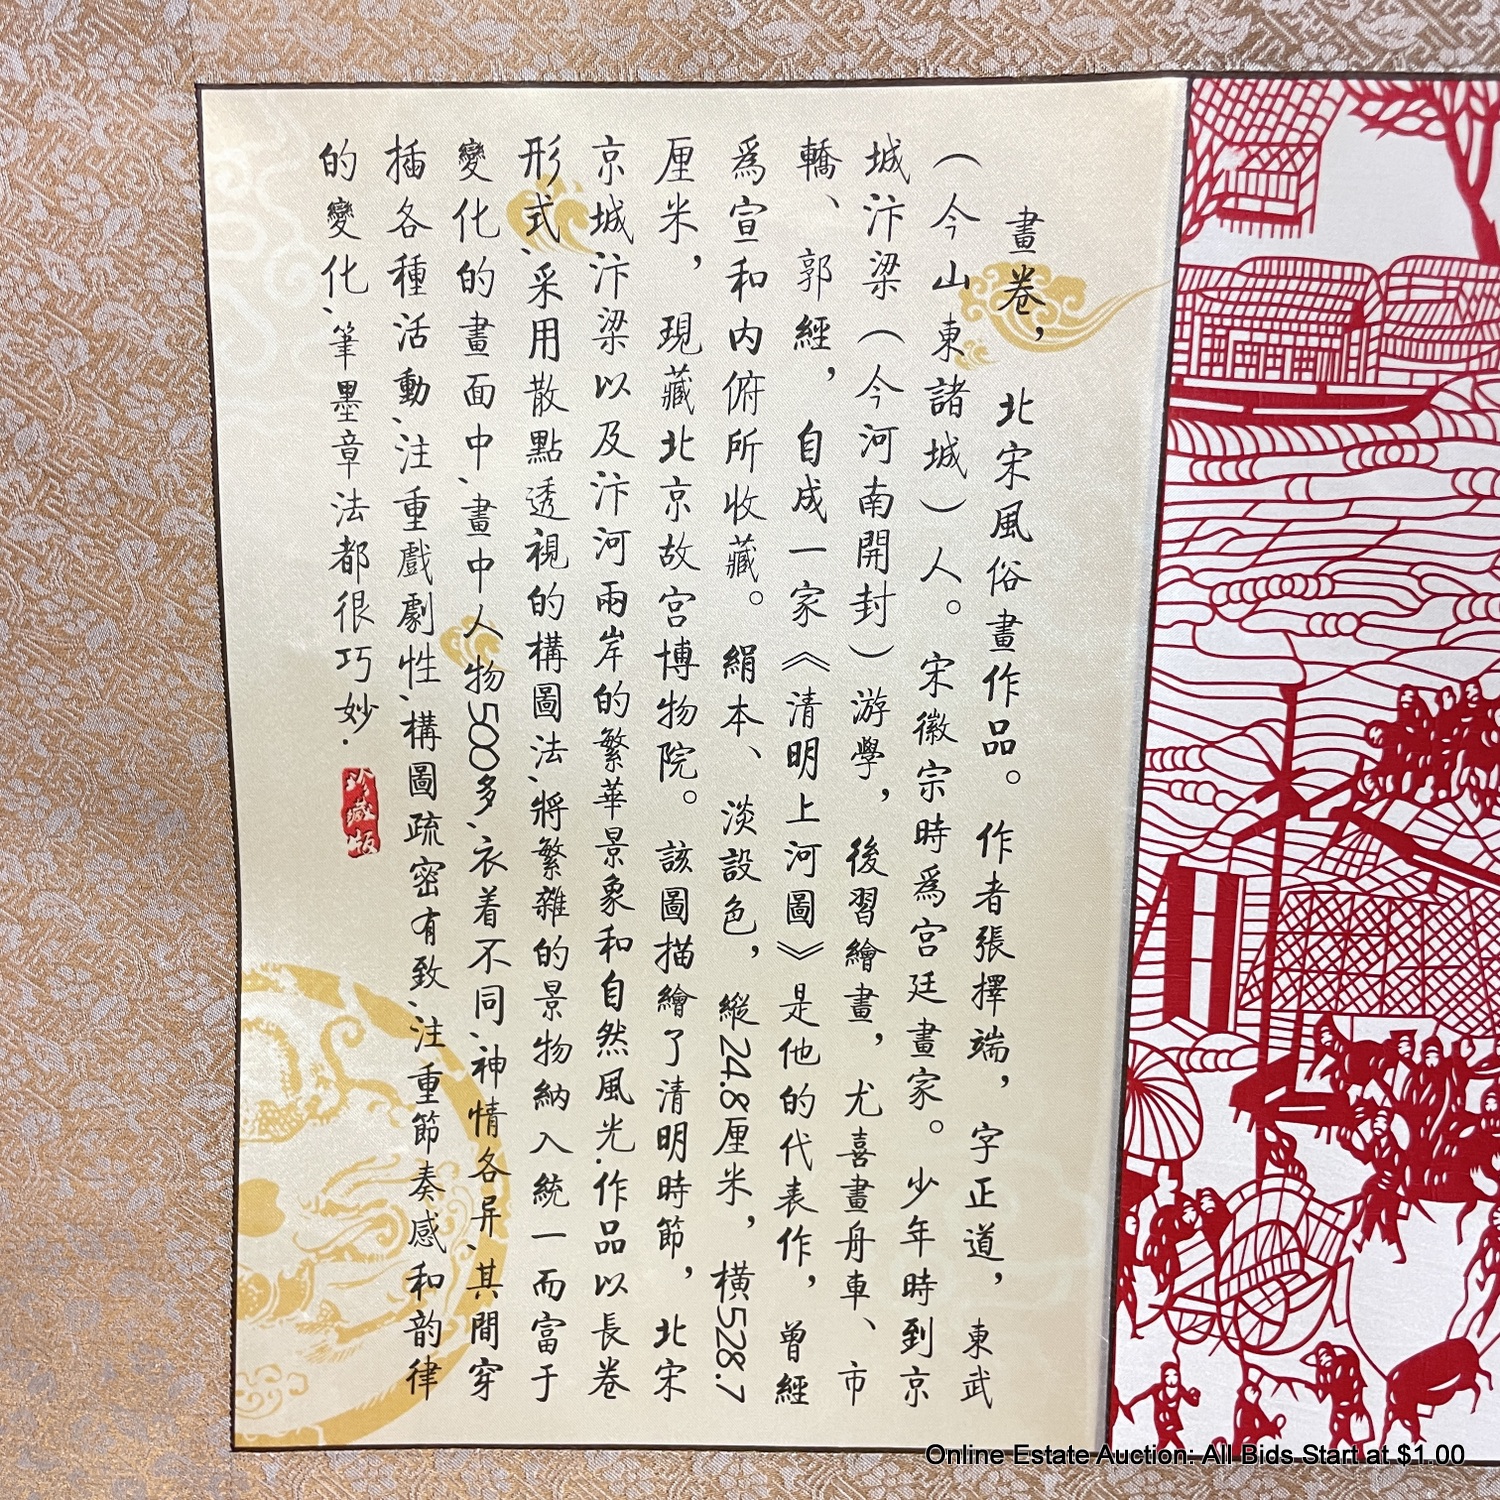 畫卷，北宋風俗畫作品。作者張擇端，字正道，東武
（今山東諸城）人。宋徽宗時爲宮廷畫家。少年時到京
城汴梁（今河南開封）游學，後習繪畫，尤喜畫舟車、市
轎、郭經，自成一家《清明上河圖》是他的代表作，曾經
爲宣和内俯所收藏。絹本、淡設色，縱24.8厘米，橫528.7
厘米，現藏北京故宮博物院。該圖描繪了清明時節，北宋
京城汴梁以及汴河兩岸的繁華景象和自然風光.作品以長卷
形式、采用散點透視的構圖法、將繁雜的景物納入統一而富于
變化的畫面中、畫中人物500多、衣着不同、神情各异、其間穿
插各種活動、注重戲劇性、構圖疏密有致、注重節奏感和韵律
的變化、筆墨章法都很巧妙.
珍藏版
Online Estate Auction: All Bids Start at $1.00